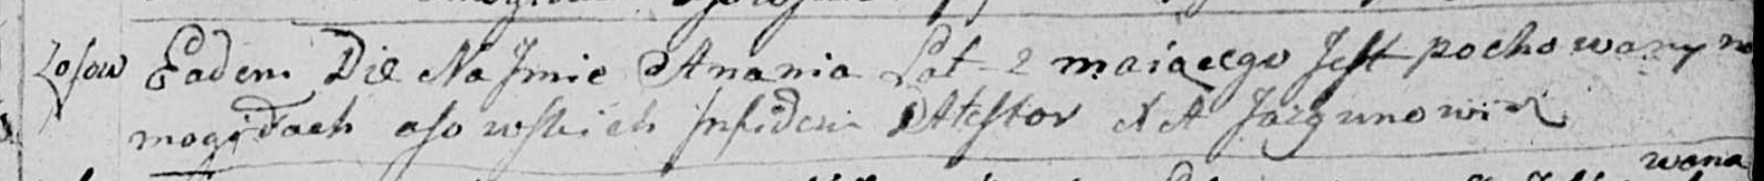 Łosow Eadem Die Na Jmie Anania Lat 2 maiącego Jest pochowany na
mogiłach osowskich Jnfidem Attestor X A Jazgunowicz
wana